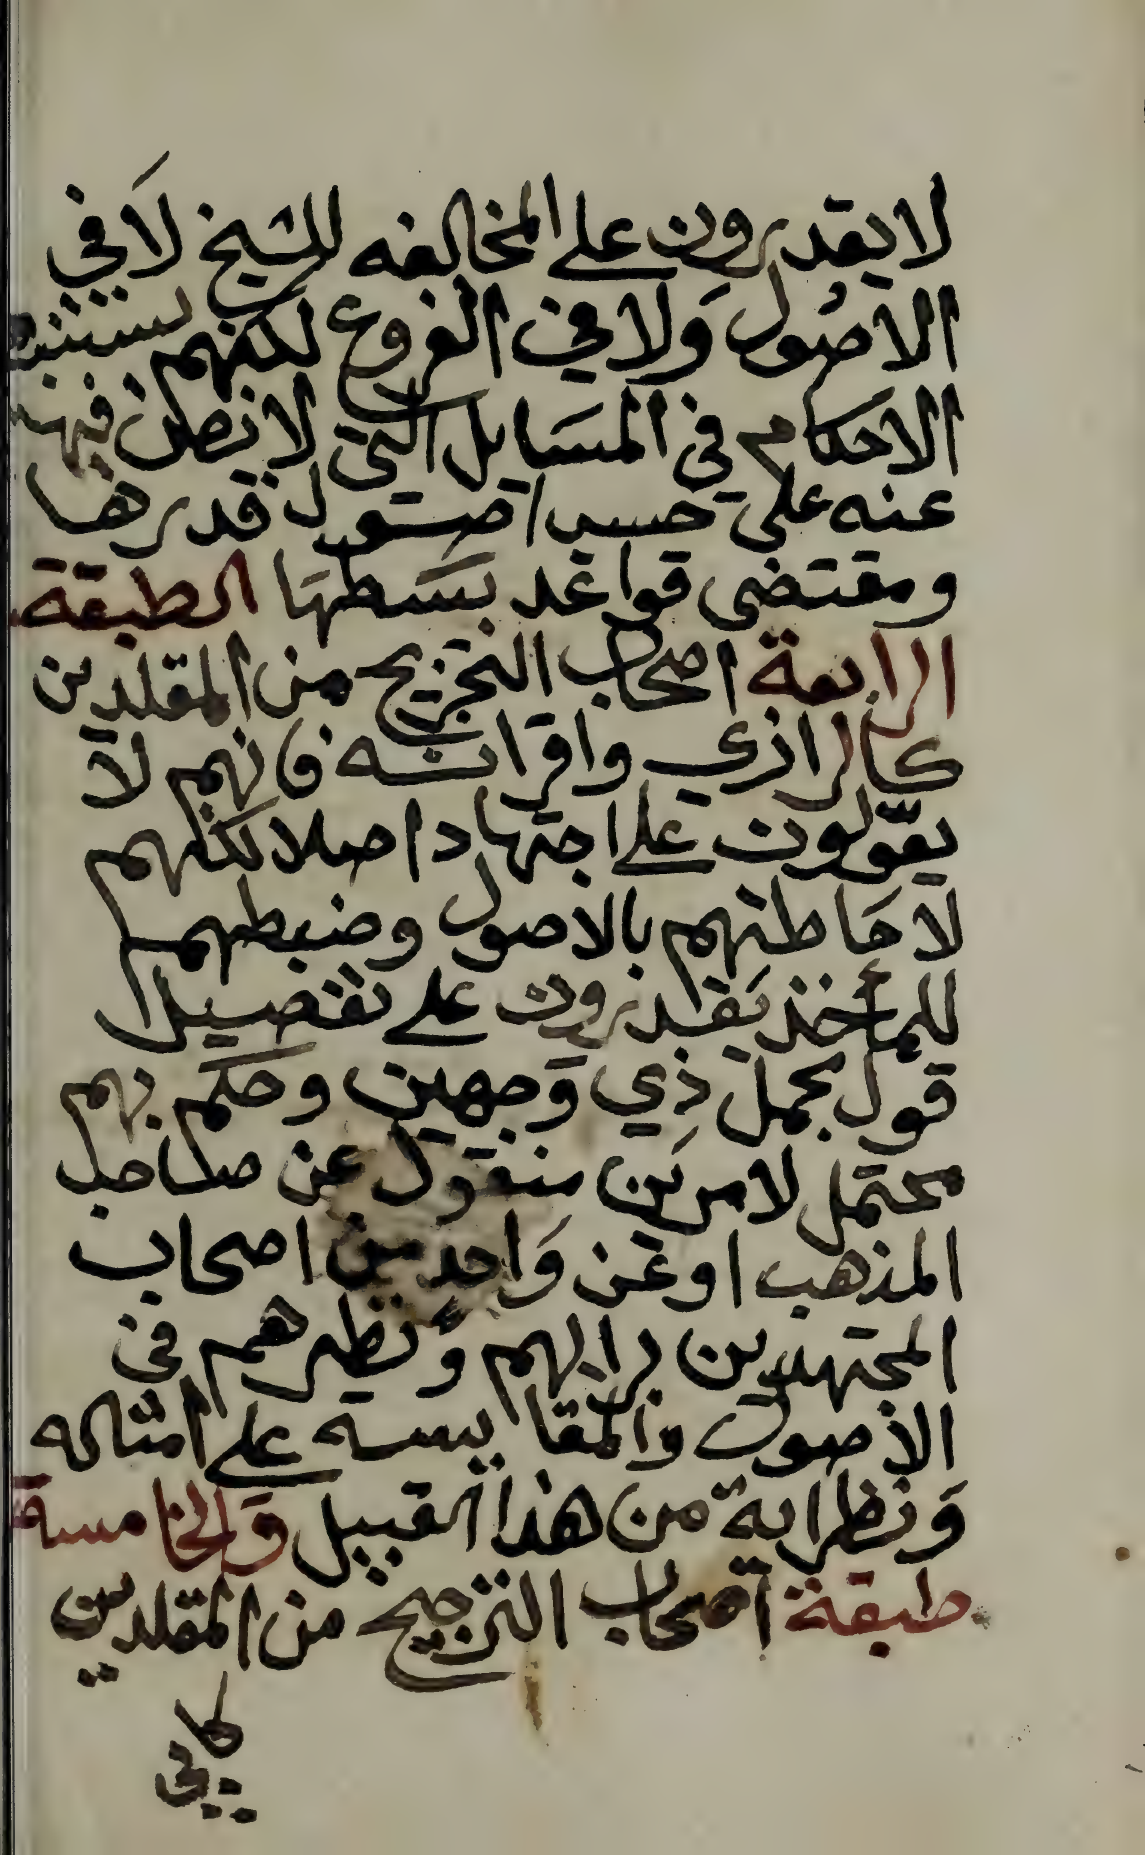 لا يقدرون على المخالفه للشيخ لَا في
الاصُول وَلا في الفروع لكنهم
الاحكام في المسَايل التي لا نص
عنه على حسب اصول قدرها
ومقتضى قواعد بسَطهَا الطبقة
الرابعة اصحاب التخريج من المقلدين
كالرازي واقرانه فانهم لا
يقولون على اجتهاد اصلا لكنهم
لاحَاطتهم بالاصول وضبطهم
للمأخذ يَقدرون على تفصيل
قول بجمل ذِي وَجهين وحكم بهم
محتمل لامرين منقول عن صاحب
المذهب او عن وَاحد من اصحاب
المجتهدين برايهم وَنظيرهم في
الاصول والمقا ييسه على امثاله
وَنظرايه من هذا القبيل وَالخامسة
طبقة اصحاب الترجيح من المقلدين
كابي